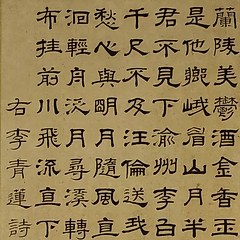 蘭陵美鬱酒金香玉
是他鄉峨眉山月半
君不見下渝州李白
千尺不及汪倫送我
愁心與明月隨風直
洄輕舟泛月尋溪轉
布挂前川飛流直下
右李青蓮詩